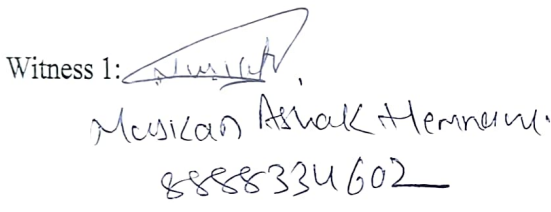 Witness 1:
Muskan Ashok Hemnani.
8888334602